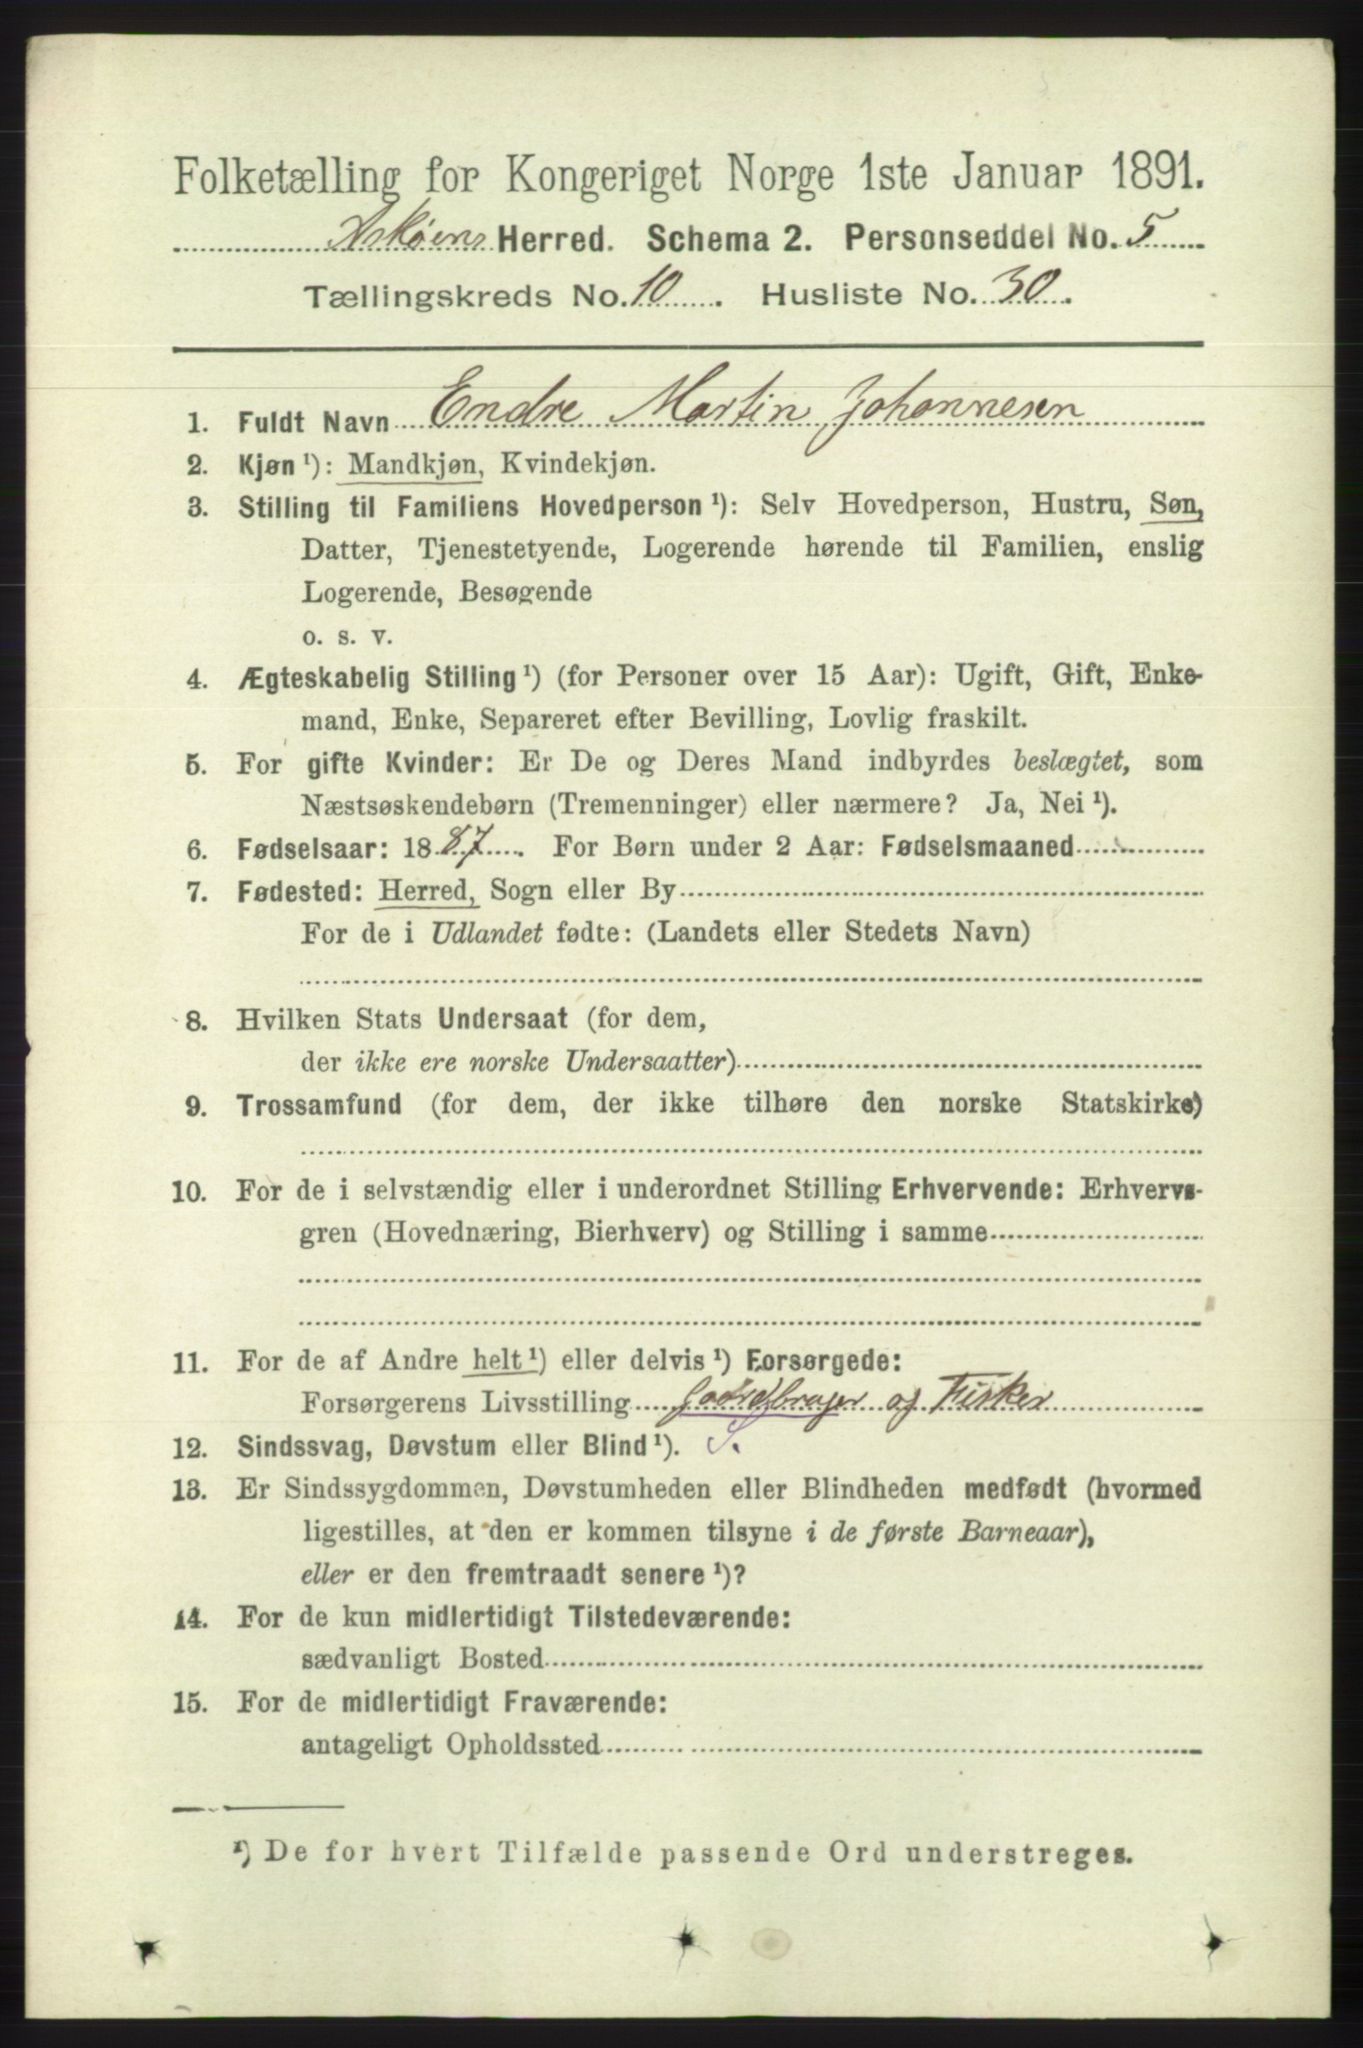 Folketælling for Kongeriget Norge 1ste Januar 1891.
Askøens Herred. Schema 2. Personseddel No. 5
Tællingskreds No. 10. Husliste No. 30.
1. Fuldt Navn Endre Martin Johannesen
2. Kjøn ¹): Mandkjøn, Kvindekjøn.
3. Stilling til Familiens Hovedperson ¹): Selv Hovedperson, Hustru, Søn,
Datter, Tjenestetyende, Logerende hørende til Familien, enslig
Logerende, Besøgende
o. s. v.
4. Ægteskabelig Stilling ¹) (for Personer over 15 Aar): Ugift, Gift, Enke-
mand, Enke, Separeret efter Bevilling, Lovlig fraskilt.
5. For gifte Kvinder: Er De og Deres Mand indbyrdes beslægtet, som
Næstsøskendebørn (Tremenninger) eller nærmere? Ja, Nei ¹).
6. Fødselsaar: 1887. For Børn under 2 Aar: Fødselsmaaned
7. Fødested: Herred, Sogn eller By
For de i Udlandet fødte: (Landets eller Stedets Navn)
8. Hvilken Stats Undersaat (for dem,
der ikke ere norske Undersaatter)
9. Trossamfund (for dem, der ikke tilhøre den norske Statskirke)
10. For de i selvstændig eller i underordnet Stilling Erhvervende: Erhvervs-
gren (Hovednæring, Bierhverv) og Stilling i samme
11. For de af Andre helt ¹) eller delvis ¹) Forsørgede:
Forsørgerens Livsstilling Gaardbruger og Fisker
12. Sindssvag, Døvstum eller Blind ¹). S.
13. Er Sindssygdommen, Døvstumheden eller Blindheden medfødt (hvormed
ligestilles, at den er kommen tilsyne i de første Barneaar),
eller er den fremtraadt senere ¹)?
14. For de kun midlertidigt Tilstedeværende:
sædvanligt Bosted
15. For de midlertidigt Fraværende:
antageligt Opholdssted
¹) De for hvert Tilfælde passende Ord understreges.